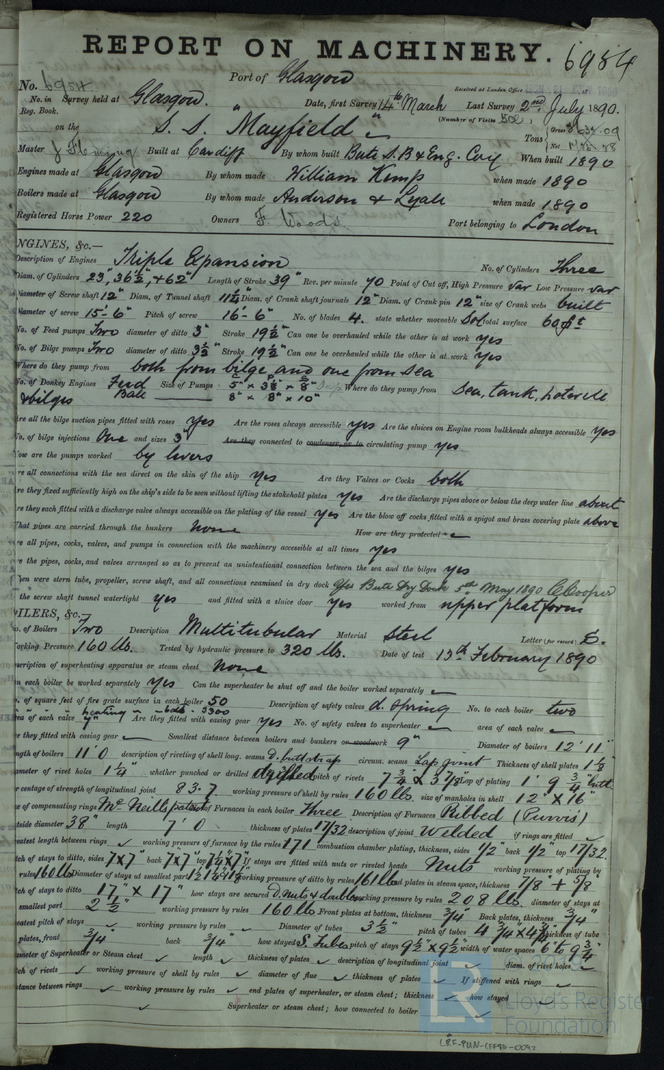 REPORT ON MACHINERY. 6984
No. 6984 Port of Glasgow Received at London Office
No. in Survey held at Glasgow. Date, first Survey 14th March Last Survey 2nd July 1890.
Reg. Book. (Number of Visits
on the S. S. "Mayfield" Tons Gross Net
Master J Fleming Built at Cardiff By whom built Bute S.B & Eng. Coy When built 1890
Engines made at Glasgow By whom made William Kemp when made 1890
Boilers made at Glasgow By whom made Anderson & Lyall when made 1890
Registered Horse Power 220 Owners F. Woods Port belonging to London
NGINES, &c.—
Description of Engines Triple Expansion No. of Cylinders Three
Diam. of Cylinders 23", 36½", & 62" Length of Stroke 39" Rev. per minute 70 Point of Cut off, High Pressure var Low Pressure var
Diameter of Screw shaft 12" Diam. of Tunnel shaft 11¼ Diam. of Crank shaft journals 12" Diam. of Crank pin 12" size of Crank webs built
Diameter of screw 15'-6" Pitch of screw 16'-6" No. of blades 4. state whether moveable Sol total surface 60 ft
No. of Feed pumps Two diameter of ditto 3" Stroke 19½" Can one be overhauled while the other is at work yes
No. of Bilge pumps Two diameter of ditto 3½" Stroke 19½" Can one be overhauled while the other is at work yes
Where do they pump from both from bilge and one from sea
No. of Donkey Engines Feed Size of Pumps 5" x 3½" x 8" Where do they pump from Sea, tank, hotwell
& bilges Bale 8" x 8" x 10"
Are all the bilge suction pipes fitted with roses yes Are the roses always accessible yes Are the sluices on Engine room bulkheads always accessible yes
No. of bilge injections One and sizes 3" Are they connected to condenser, or to circulating pump yes
How are the pumps worked by levers
Are all connections with the sea direct on the skin of the ship yes Are they Valves or Cocks both
Are they fixed sufficiently high on the ship's side to be seen without lifting the stokehold plates yes Are the discharge pipes above or below the deep water line above
Are they each fitted with a discharge valve always accessible on the plating of the vessel yes Are the blow off cocks fitted with a spigot and brass covering plate above
What pipes are carried through the bunkers none How are they protected
Are all pipes, cocks, valves, and pumps in connection with the machinery accessible at all times yes
Are the pipes, cocks, and valves arranged so as to prevent an unintentional connection between the sea and the bilges yes
When were stern tube, propeller, screw shaft, and all connections examined in dry dock Yes Bute Dry Dock 5th May 1890 C. Cooper
the screw shaft tunnel watertight yes and fitted with a sluice door yes worked from upper platform
OILERS, &c.—
No. of Boilers Two Description Multitubular Material Steel Letter (for record) S.
Working Pressure 160 lb. Tested by hydraulic pressure to 320 lb. Date of test 13th February 1890
Description of superheating apparatus or steam chest none
Can each boiler be worked separately yes Can the superheater be shut off and the boiler worked separately
No. of square feet of fire grate surface in each boiler 50 Description of safety valves d. spring No. to each boiler two
heating 3300
area of each valve Are they fitted with easing gear yes No. of safety valves to superheater area of each valve
are they fitted with easing gear Smallest distance between boilers and bunkers or woodwork 9" Diameter of boilers 12' 11"
Length of boilers 11' 0 description of riveting of shell long. seams D. butt strap circum. seams Lap joint Thickness of shell plates 1⅛"
Diameter of rivet holes 1¼" whether punched or drilled drilled pitch of rivets Lap of plating 1' 9¾" butt
Percentage of strength of longitudinal joint 83.7 working pressure of shell by rules 160 lbs. size of manholes in shell 12" x 16"
size of compensating rings McNeills patent Furnaces in each boiler Three Description of Furnaces Ribbed (Purves)
outside diameter 38" length 7' 0 thickness of plates 17/32 description of joint Welded if rings are fitted
greatest length between rings working pressure of furnace by the rules 171 combustion chamber plating, thickness, sides ½" back ½" top 17/32
Pitch of stays to ditto, sides 7 x 7" back 7 x 7" top 7½ x 7 If stays are fitted with nuts or riveted heads Nuts working pressure of plating by
rules 160 lbs Diameter of stays at smallest part working pressure of ditto by rules 161 lbs end plates in steam space, thickness 7/8 + 9/8"
Pitch of stays to ditto 17" x 17" how stays are secured D. Nuts & doublers working pressure by rules 208 lb diameter of stays at
smallest part 2½" working pressure by rules 160 lb Front plates at bottom, thickness ¾" Back plates, thickness ¾"
Greatest pitch of stays working pressure by rules Diameter of tubes 3½" pitch of tubes 4¾" x 4¾" thickness of tube
plates, front ¾" back ¾" how stayed S. Tubes pitch of stays 9½" x 9½" width of water spaces
Diameter of Superheater or Steam chest length thickness of plates description of longitudinal joint diam. of rivet holes
Pitch of rivets working pressure of shell by rules diameter of flue thickness of plates If stiffened with rings
distance between rings working pressure by rules end plates of superheater, or steam chest; thickness how stayed
Superheater or steam chest; how connected to boiler
LR
Lloyd's Register
Foundation
LRF-PUN-LFF95-0092